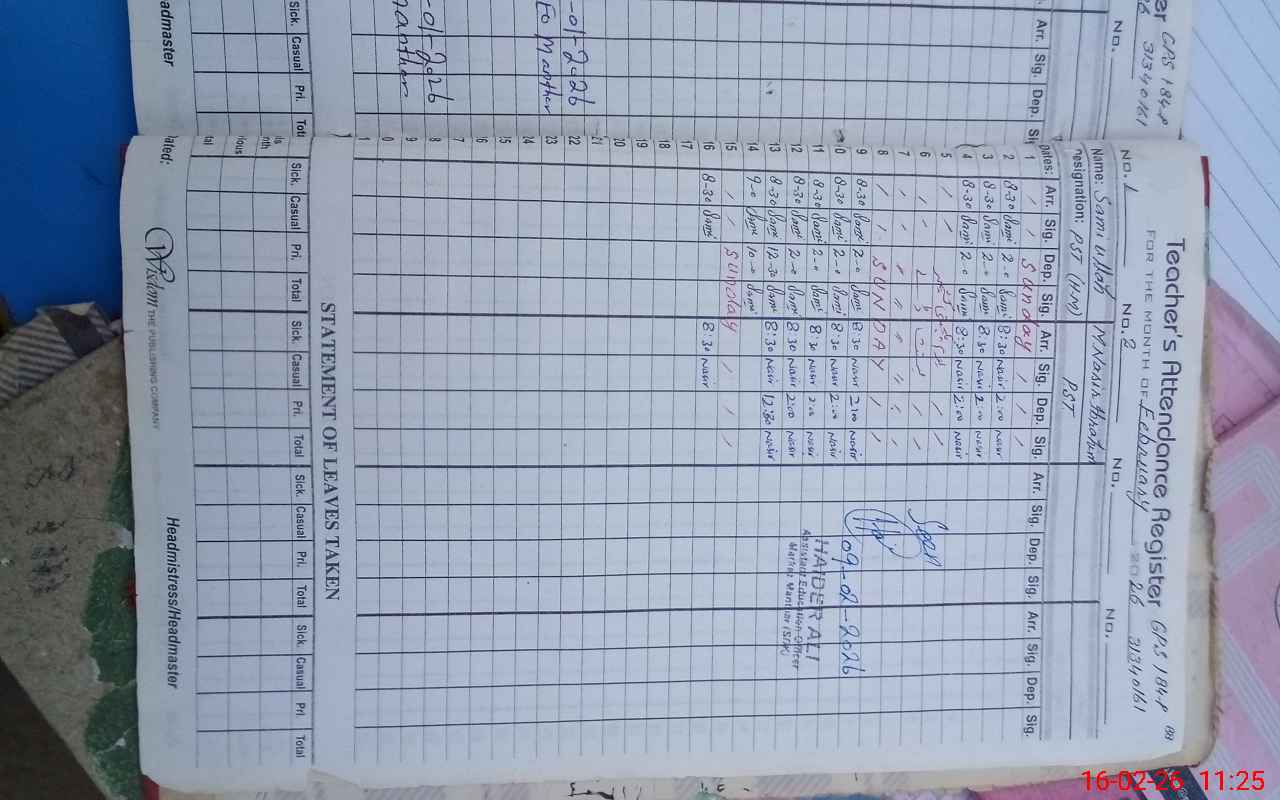 Teacher's Attendance Register GPS 184-P
FOR THE MONTH OF February 2026 31340161
No. 1 No. 2 No. No.
Name: Sami Ullah M Nasir Ibrahim
Designation: PST (H.M) PST
Dates: Arr. Sig. Dep. Sig. Arr. Sig. Dep. Sig. Arr. Sig. Dep. Sig. Arr. Sig. Dep. Sig.
1 / / Sunday / / /
2 8-30 Sami 2-0 Sami 8:30 Nasir 2:00 Nasir
3 8-30 Sami 2-0 Sami 8:30 Nasir 2:00 Nasir
4 8-30 Sami 2-0 Sami 8:30 Nasir 2:00 Nasir
5 / / / /
6 / /
7 / / " " " " / /
8 / / SUNDAY / /
9 8-30 Sami 2-0 Sami 8:30 Nasir 2:00 Nasir
10 8-30 Sami 2-0 Sami 8:30 Nasir 2:00 Nasir
11 8-30 Sami 2-0 Sami 8:30 Nasir 2:00 Nasir
12 8-30 Sami 2-0 Sami 8:30 Nasir 2:00 Nasir
13 8-30 Sami 12-30 Sami 8:30 Nasir 12:30 Nasir
14 9-0 Sami 10-0 Sami
15 / / Sunday / / /
16 8-30 Sami 8:30 Nasir
17
18
19
20
21
22
23
Seen
09-02-2026
HAIDER ALI
Assistant Education Officer
STATEMENT OF LEAVES TAKEN
Sick. Casual Pri. Total Sick. Casual Pri. Total Sick. Casual Pri. Total Sick. Casual Pri. Total
Wisdom THE PUBLISHING COMPANY
Headmistress/Headmaster
GPS 184-P
31340161
No.
Arr. Sig. Dep.
-01-2026
-01-2026
Sick. Casual Pri.
admaster
16-02-26 11:25